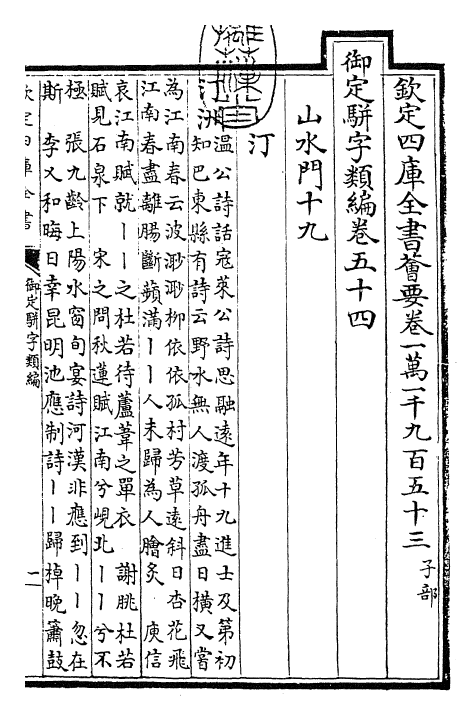 欽定四庫全書薈要卷一萬一千九百五十三 子部
御定駢字類編卷五十四
山水門十九
汀
汀洲 温公詩話寇萊公詩思融遠年十九進士及第初
知巴東縣有詩云野水無人渡孤舟盡日橫又嘗
為江南春云波渺渺柳依依孤村芳草遠斜日杏花飛
江南春盡離腸斷蘋滿丨丨人未歸為人膾炙 庾信
哀江南賦就丨丨之杜若待蘆葦之單衣 謝朓杜若
賦見石泉下 宋之問秋蓮賦江南兮峴北丨丨兮不
極 張九齡上陽水窗旬宴詩河漢非應到丨丨忽在
斯 李乂和晦日幸昆明池應制詩丨丨歸棹晚簫鼓
欽定四庫全書
御定駢字類編